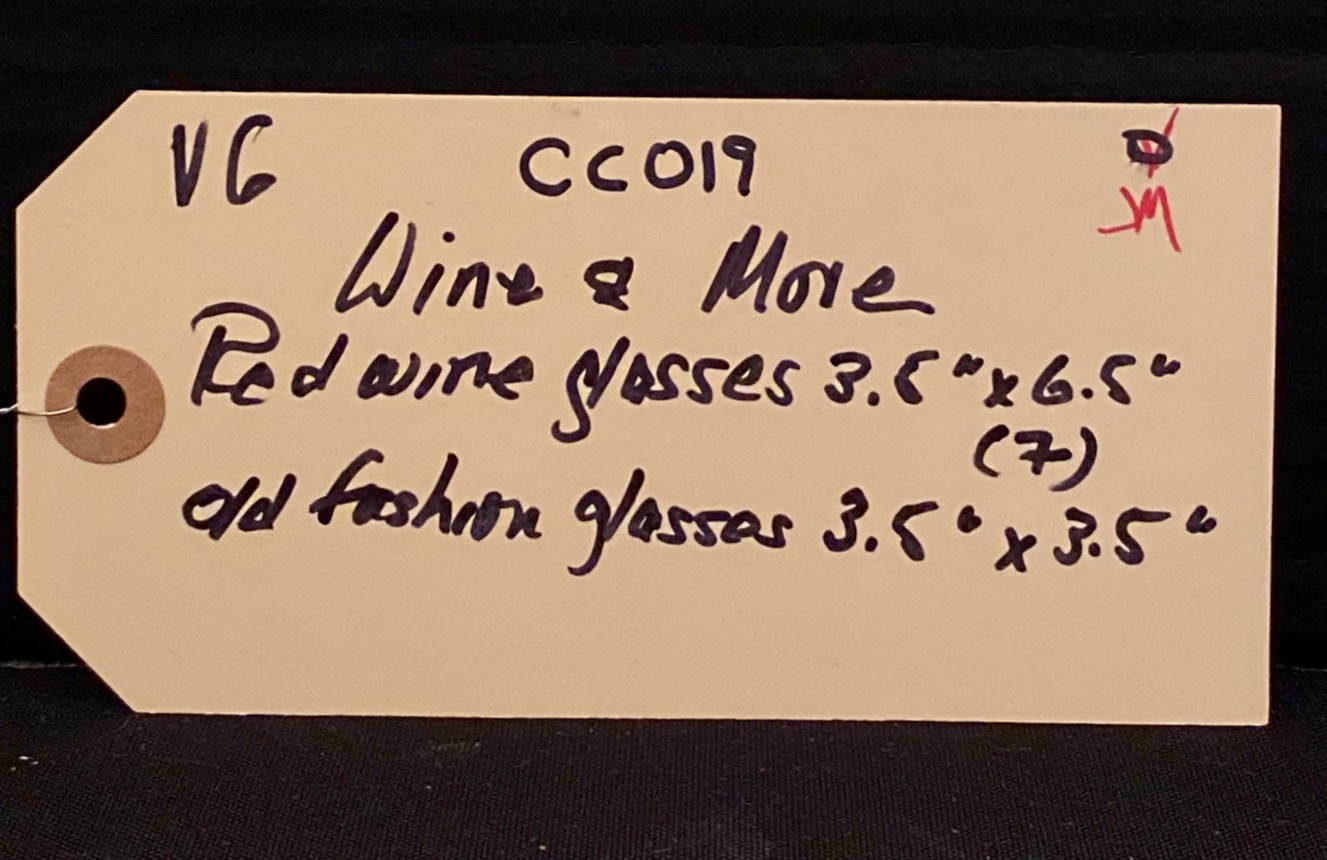 VG CC019 D
M
Wine & More
Red wine glasses 3.5" x 6.5"
(7)
old fashion glasses 3.5" x 3.5"